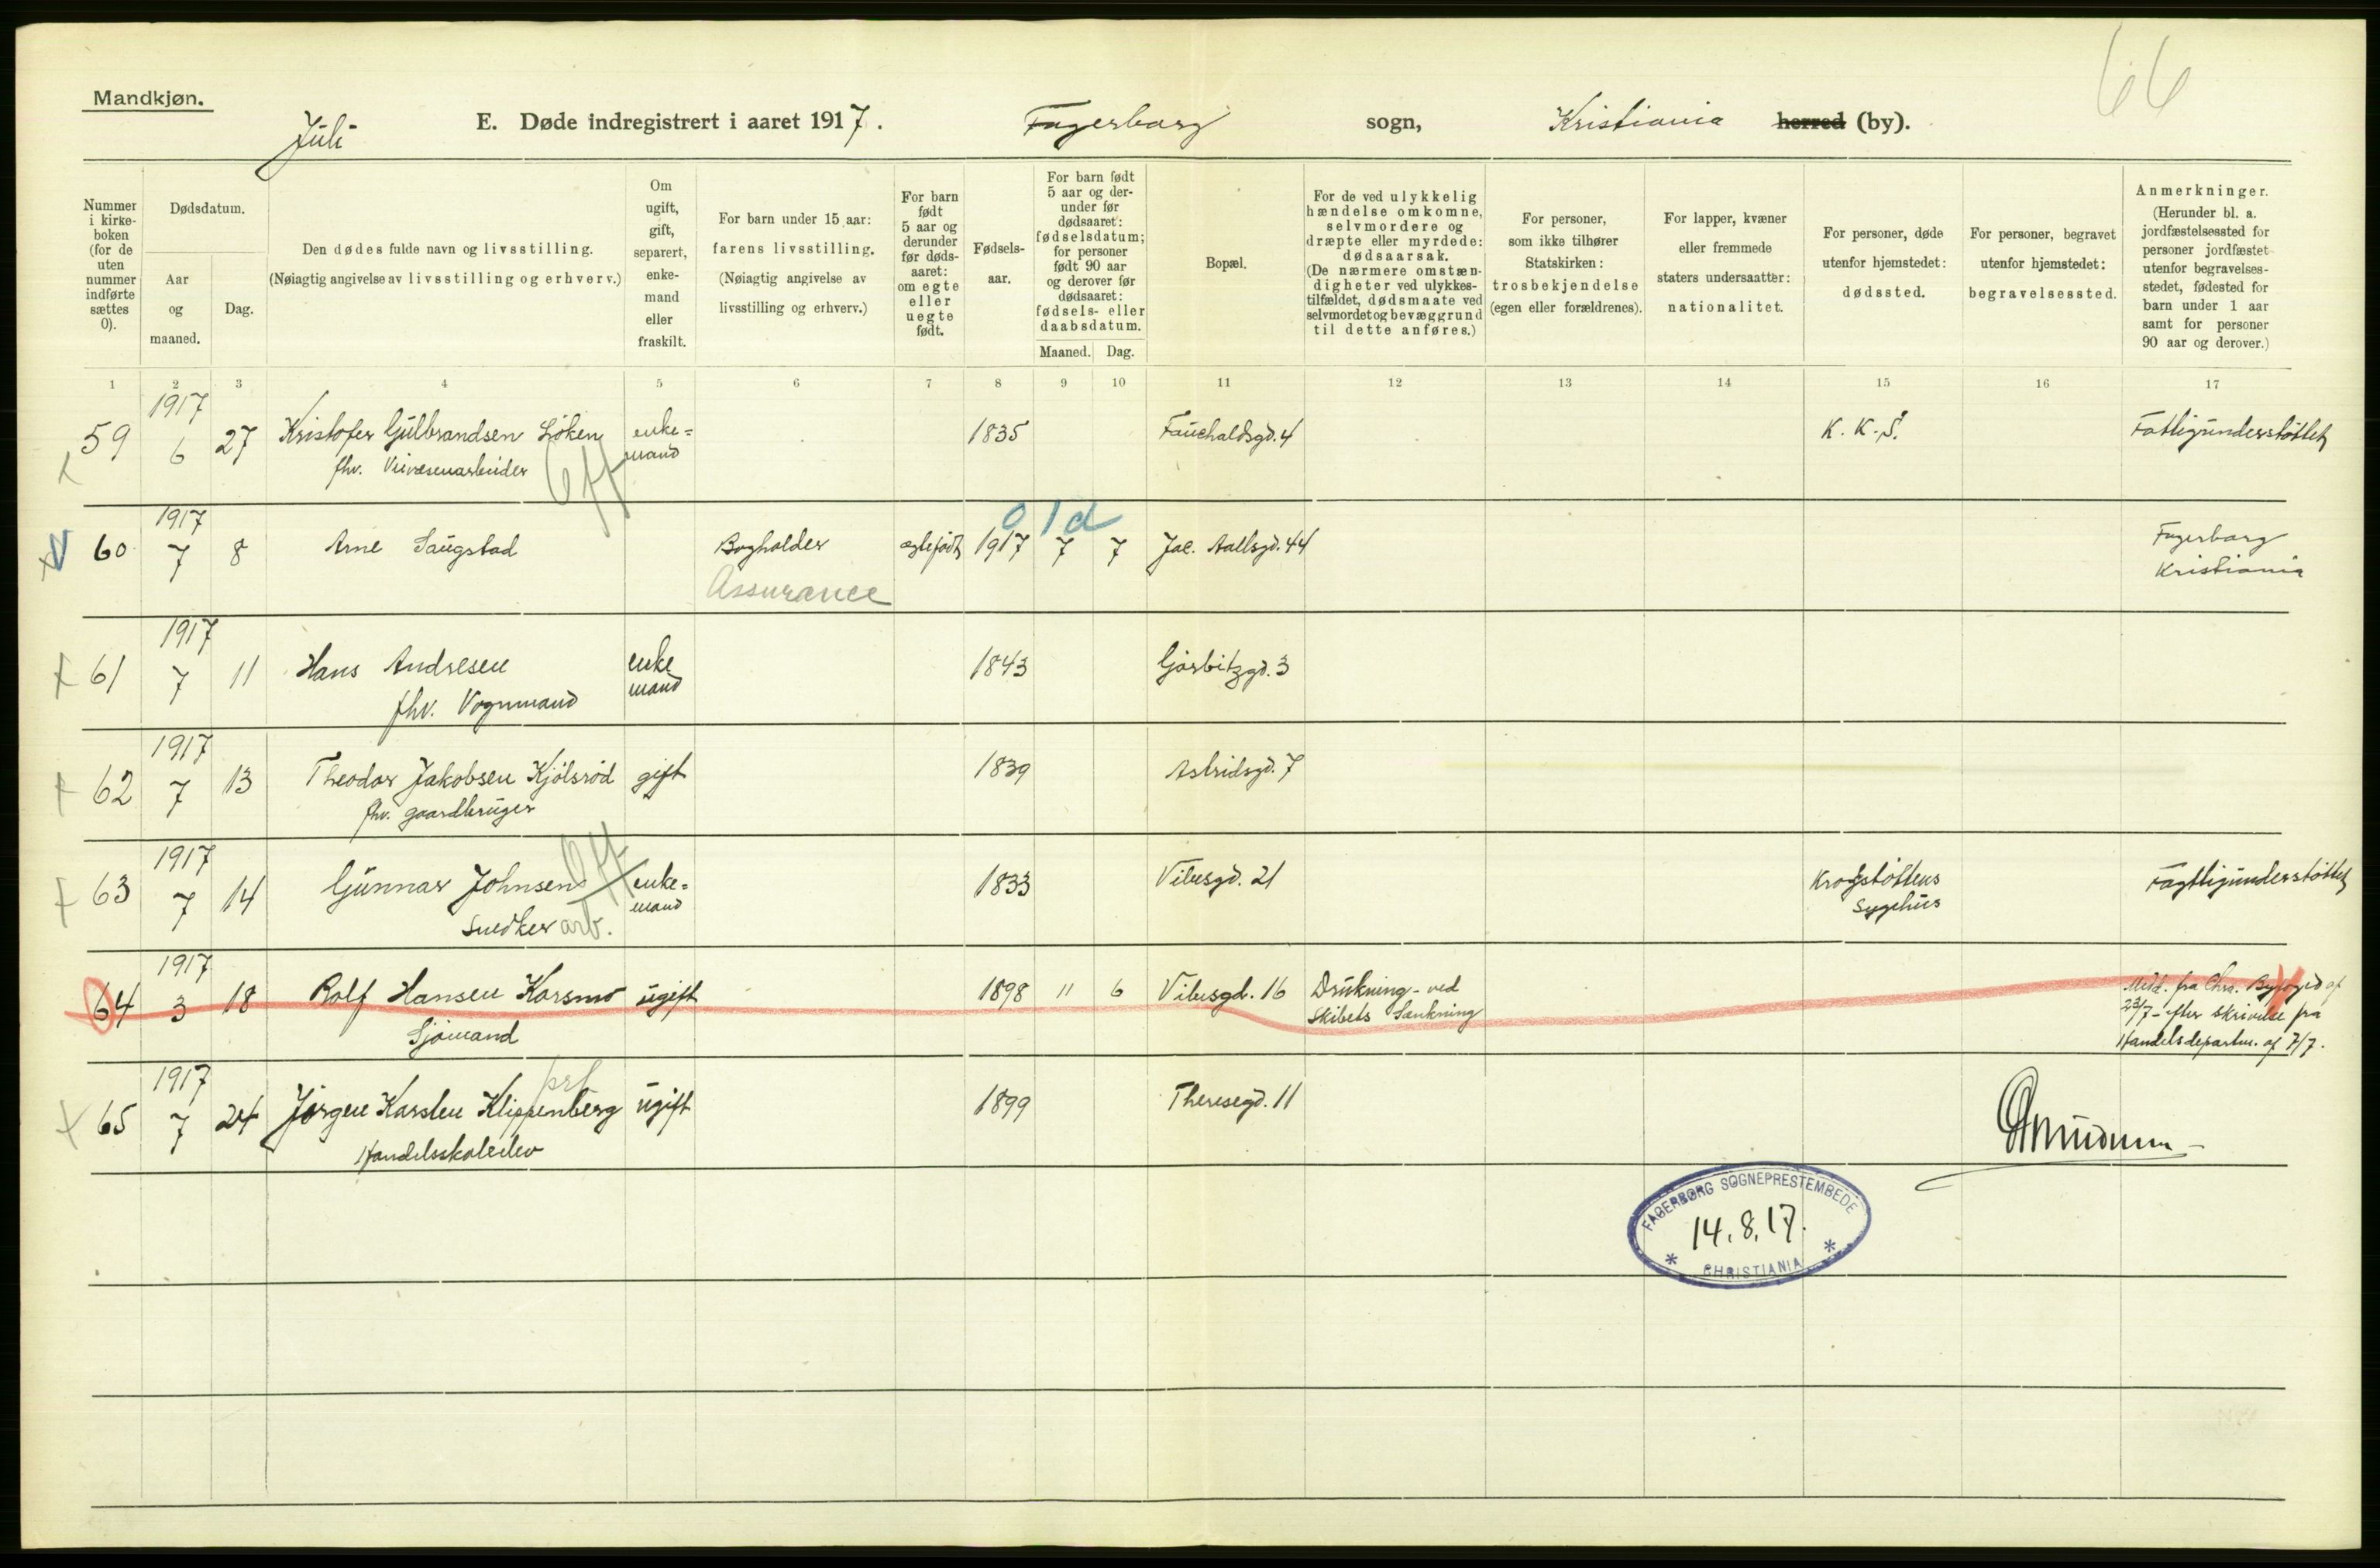 66
Mandkjøn.
Juli E. Døde indregistrert i aaret 1917. Fagerborg sogn, Kristiania herred (by).
Nummer
i kirke-
boken
(for de
uten
nummer
indførte
sættes
0).
Dødsdatum.
Aar
og
maaned.
Dag.
Den dødes fulde navn og livsstilling.
(Nøiagtig angivelse av livsstilling og erhverv.)
Om
ugift,
gift,
separert,
enke-
mand
eller
fraskilt.
For barn under 15 aar:
farens livsstilling.
(Nøiagtig angivelse av
livsstilling og erhverv.)
For barn
født
5 aar og
derunder
før døds-
aaret:
om egte
eller
uegte
født.
Fødsels-
aar.
For barn født
5 aar og der-
under før
dødsaaret:
fødselsdatum;
for personer
født 90 aar
og derover før
dødsaaret:
fødsels- eller
daabsdatum.
Maaned. Dag.
Bopæl.
For de ved ulykkelig
hændelse omkomne,
selvmordere og
dræpte eller myrdede:
dødsaarsak.
(De nærmere omstæn-
digheter ved ulykkes-
tilfældet, dødsmaate ved
selvmordet og bevæggrund
til dette anføres.)
For personer,
som ikke tilhører
Statskirken:
trosbekjendelse
(egen eller forældrenes).
For lapper, kvæner
eller fremmede
staters undersaatter:
nationalitet.
For personer, døde
utenfor hjemstedet:
dødssted.
For personer, begravet
utenfor hjemstedet:
begravelsessted.
Anmerkninger.
(Herunder bl. a.
jordfæstelsessted for
personer jordfæstet
utenfor begravelses-
stedet, fødested for
barn under 1 aar
samt for personer
90 aar og derover.)
1 2 3 4 5 6 7 8 9 10 11 12 13 14 15 16 17
1917
59 6 27 Kristofer Gulbrandsen Löken enke= 1835 Fauchaldsgd. 4 K. K. S. Fattigunderstöttet
fhv. Veivæsenarbeider mand
Off
1917 0 1 d
60 7 8 Arne Saugstad Bogholder egtefödt 1917 7 7 Jac. Aallsgd. 44 Fagerborg
Assurance Kristiania
1917
61 7 11 Hans Andresen enke 1843 Gjörbitzgd. 3
fhv. Vognmand mand
1917
62 7 13 Theodor Jakobsen Kjölsröd gift 1839 Astridsgd. 7
fhv. gaardbruger
1917 Off
63 7 14 Gunnar Johnsen enke= 1833 Vibesgd. 21 Krogstöttens Fagttigunderstöttet
Snedker arb. mand Sygehus
1917
64 3 18 Rolf Hansen Korsmo ugift 1898 11 6 Vibesgd. 16 Drukning - ved Medd. fra Chra. Byfoged af
Sjömand Skibets Sænkning 23/7 - efter skrivelse fra
Handelsdepartm. af 7/7.
1917
65 7 24 Jörgen Karsten Klippenberg ugift 1899 Theresegd. 11
Handelsskoleelev
FAGERBORG SOGNEPRESTEMBEDE
14.8.17.
* CHRISTIANIA *